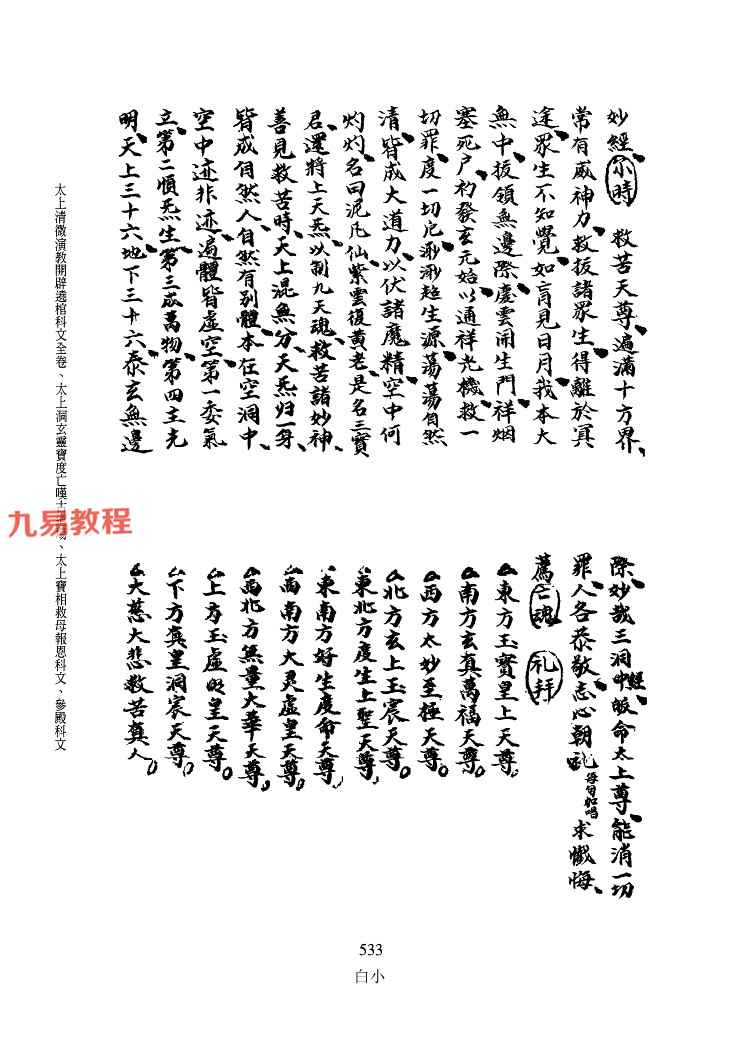 妙經尒時 救苦天尊遍滿十方界
常有威神力救拔諸眾生得離於冥
途眾生不知覺如盲見日月我本大
無中拔領無邊際慶雲開生門祥烟
塞死户初發玄元始以通祥光機救一
切罪度一切厄渺渺超生源蕩蕩自然
清皆成大道力以伏諸魔精空中何
灼灼名曰泥丸仙紫雲復黃老是名三寶
君還將上天炁以制九天魂救苦諸妙神
善見救苦時天上混無分天炁归一身
皆成自然人自然有別體本在空洞中
空中迹非迹遍體皆虛空第一委氣
立第二順炁生第三成萬物第四主光
明天上三十六地下三十六泰玄無邊
際妙哉三洞中經皈命太上尊能消一切
罪人各恭敬志心朝礼每句加唱求懺悔
薦亡魂 礼拜
東方玉寶皇上天尊
南方玄真萬福天尊
西方太妙至極天尊
北方玄上玉宸天尊
東北方度生上聖天尊
東南方好生度命天尊
西南方大灵虛皇天尊
西北方無量大華天尊
上方玉虛明皇天尊
下方真皇洞宸天尊
大慈大悲救苦真人
太上清微演教開辟遶棺科文全卷、太上洞玄靈寶度亡嘆、太上寶相救母報恩科文、參殿科文
九易教程
533
白小